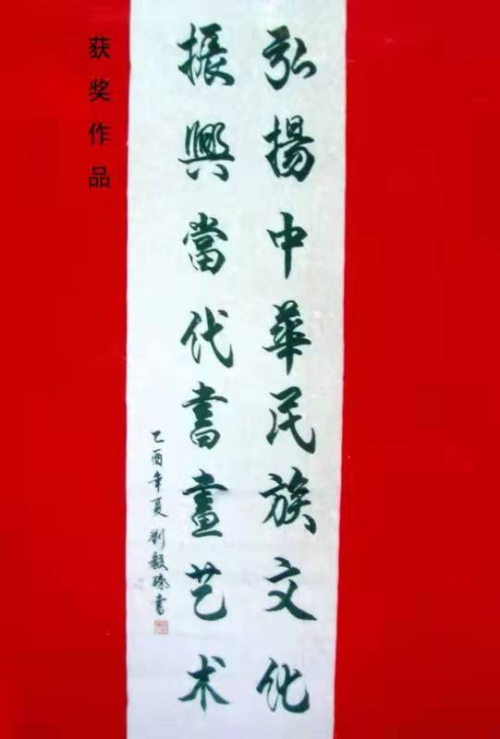 弘揚中華民族文化
振興當代書畫艺术
乙酉年夏 刘毅臻書
获奖作品